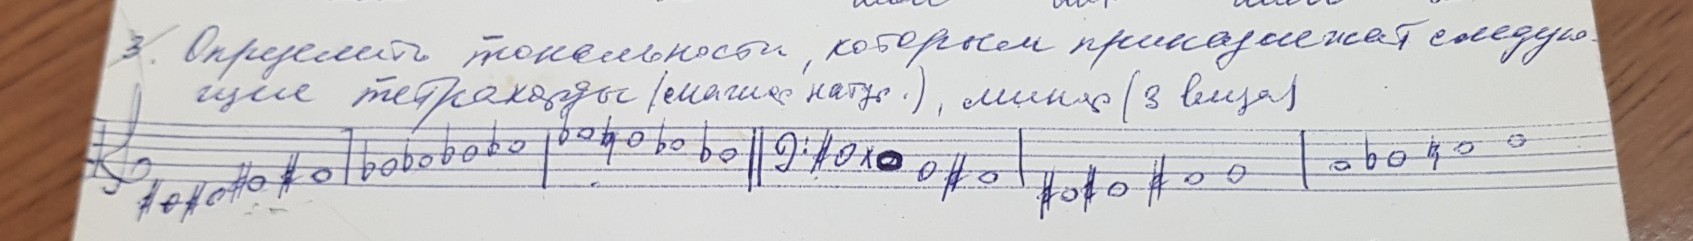 3. Определить тональности, которым принадлежат следую-
щие тетрахорды (мажор натур.), минор (3 вида)